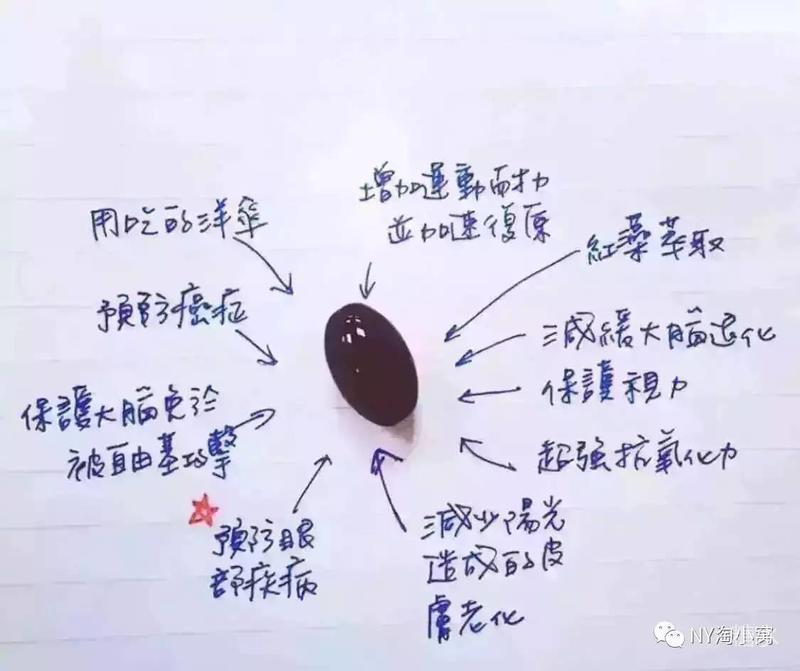 增加運動耐力
並加速復原
用吃的洋傘
紅藻萃取
預防癌症
減緩大腦退化
保護視力
保護大腦免於
被自由基攻擊
超強抗氧化力
預防眼
部疾病
減少陽光
造成的皮
膚老化
NY淘小窝